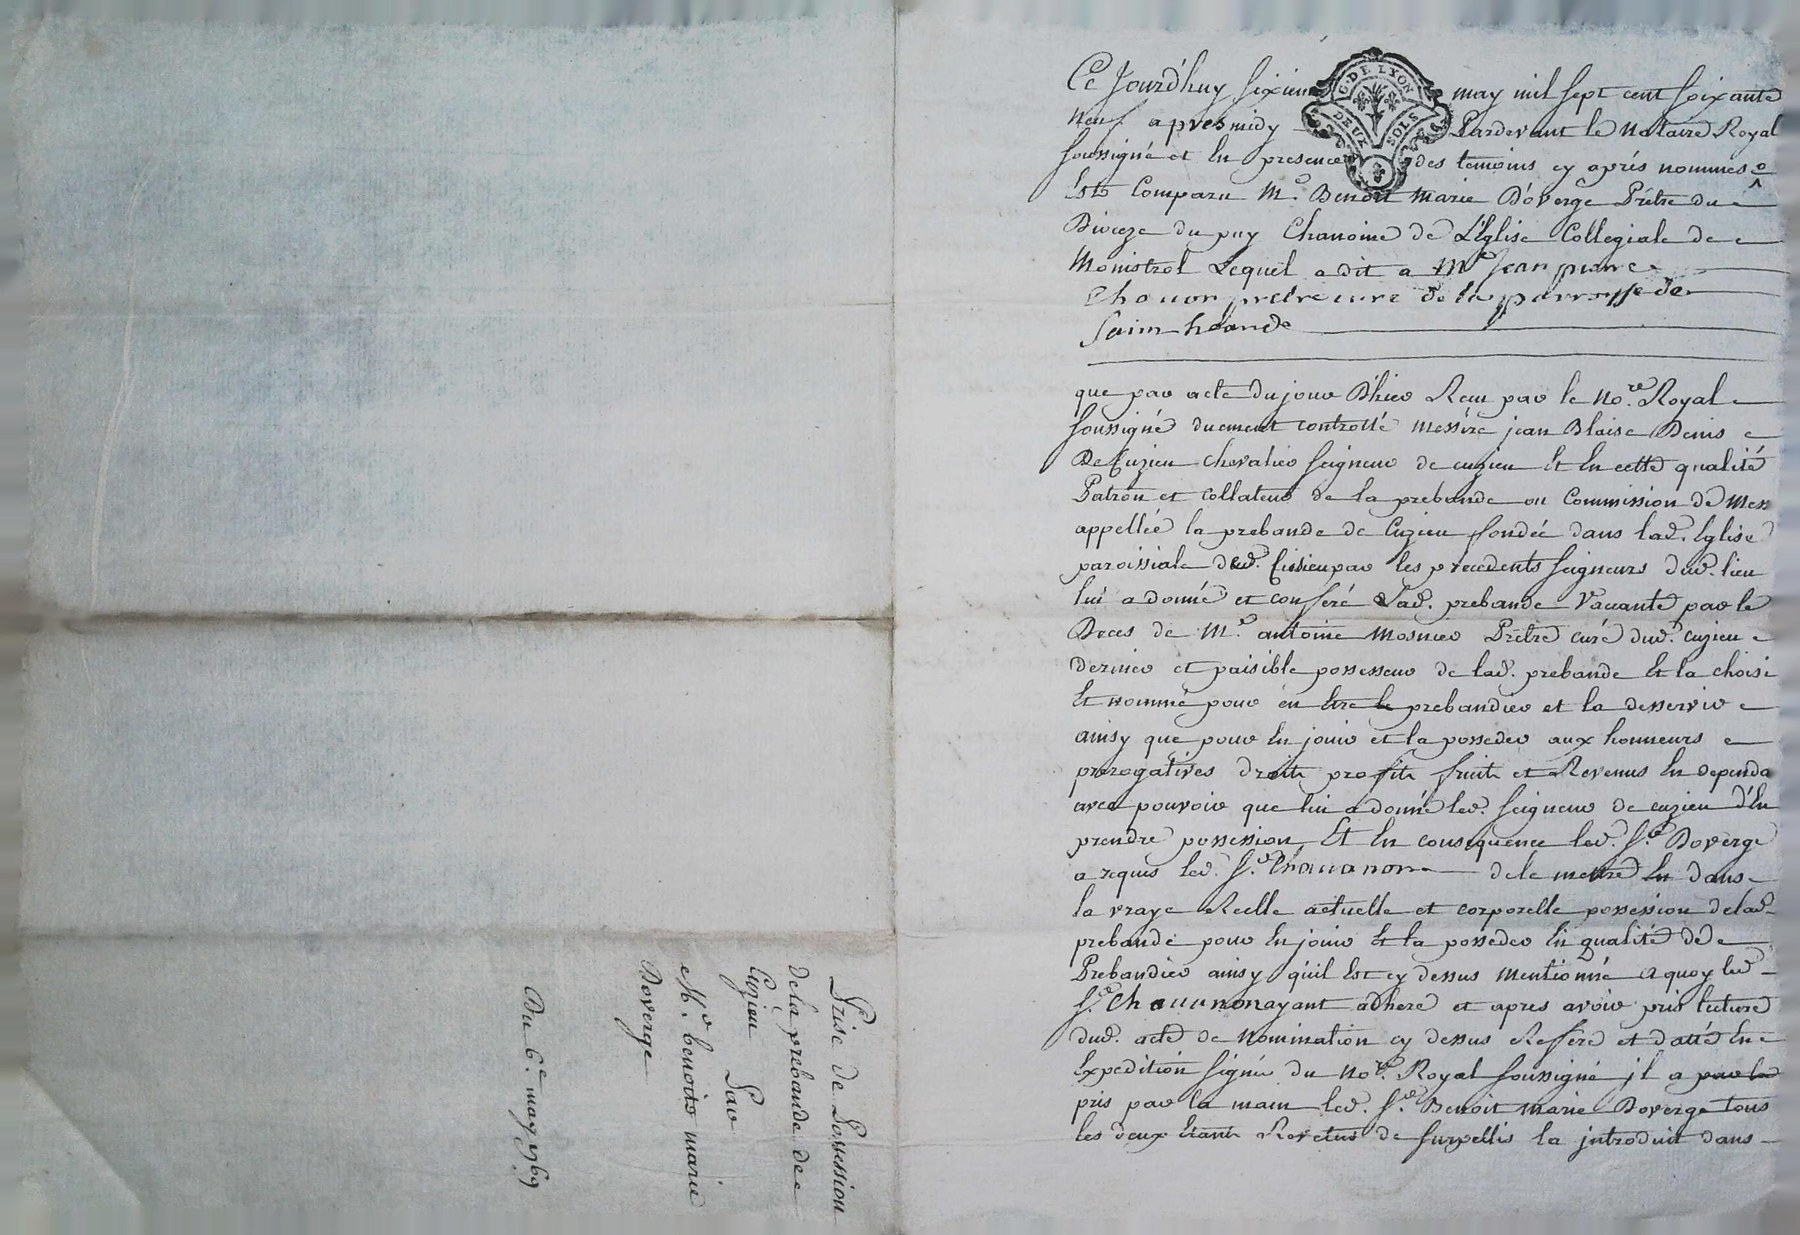 Prise de Possession
de la prebande de
Cuzieu Par
Mr. benoits marie
Doverge
Du 6e. may 1769
Ce Jourd'huy sixieme may mil sept cent soixante
G. DE LYON
DEUX SOLS
neuf apres midy Pardevant le Notaire Royal
soussigné et En presence des temoins cy aprés nommés
Est Comparu Mr. Benoit Marie Doverge Prêtre du
Dioceze du puy Chanoine de L'Eglise Collegiale de
Monistrol Lequel a dit a Mre Jean pierre
Chauanon pretre curé de la parroysse de
Sain heande
que par acte du jour D'hier Recu par le Nore. Royal
soussigné duement controllé Messire jean Blaise Denis
De Cuzieu chevalier seigneur de cuzieu Et En cette qualité
Patron et collateur de la prebande ou Commission de Mess
appellée la prebande de Cuzieu fondée dans lad. Eglise
paroissiale dud. Cuzieu par les precedents seigneurs dud. lieu
lui a donné et conferé Lad. prebande Vacante par le
Deces de Mre. antoine Mosnier Prêtre curé dud. cuzieu
dernier et paisible possesseur de lad. prebande Et la choisi
Et nommé pour en Etre le prebandier et la desservir
ainsy que pour En jouir et la posseder aux honneurs
prerogatives droits profits fruits et Revenus En dependa
avec pouvoir que lui a donné led. seigneur de cuzieu d'En
prendre possession Et En consequence led. Sr. Doverge
a requis led. Sr. Chauanon de le mettre En dans
la vraye Reelle actuelle et corporelle possession de lad.
prebande pour En jouir Et la posseder En qualité de
Prebandier ainsy qu'il Est cy dessus mentionné a quoy led.
Sr. Chauanon ayant adhere et apres avoir pris lecture
dud. acte de Nomination cy dessus Referé et datté En
Expedition signée du Nore. Royal soussigné jl a par la
pris par la main led. Sr. Benoit Marie Doverge tous
les deux Etant Revetus de surpellis la jntroduit dans